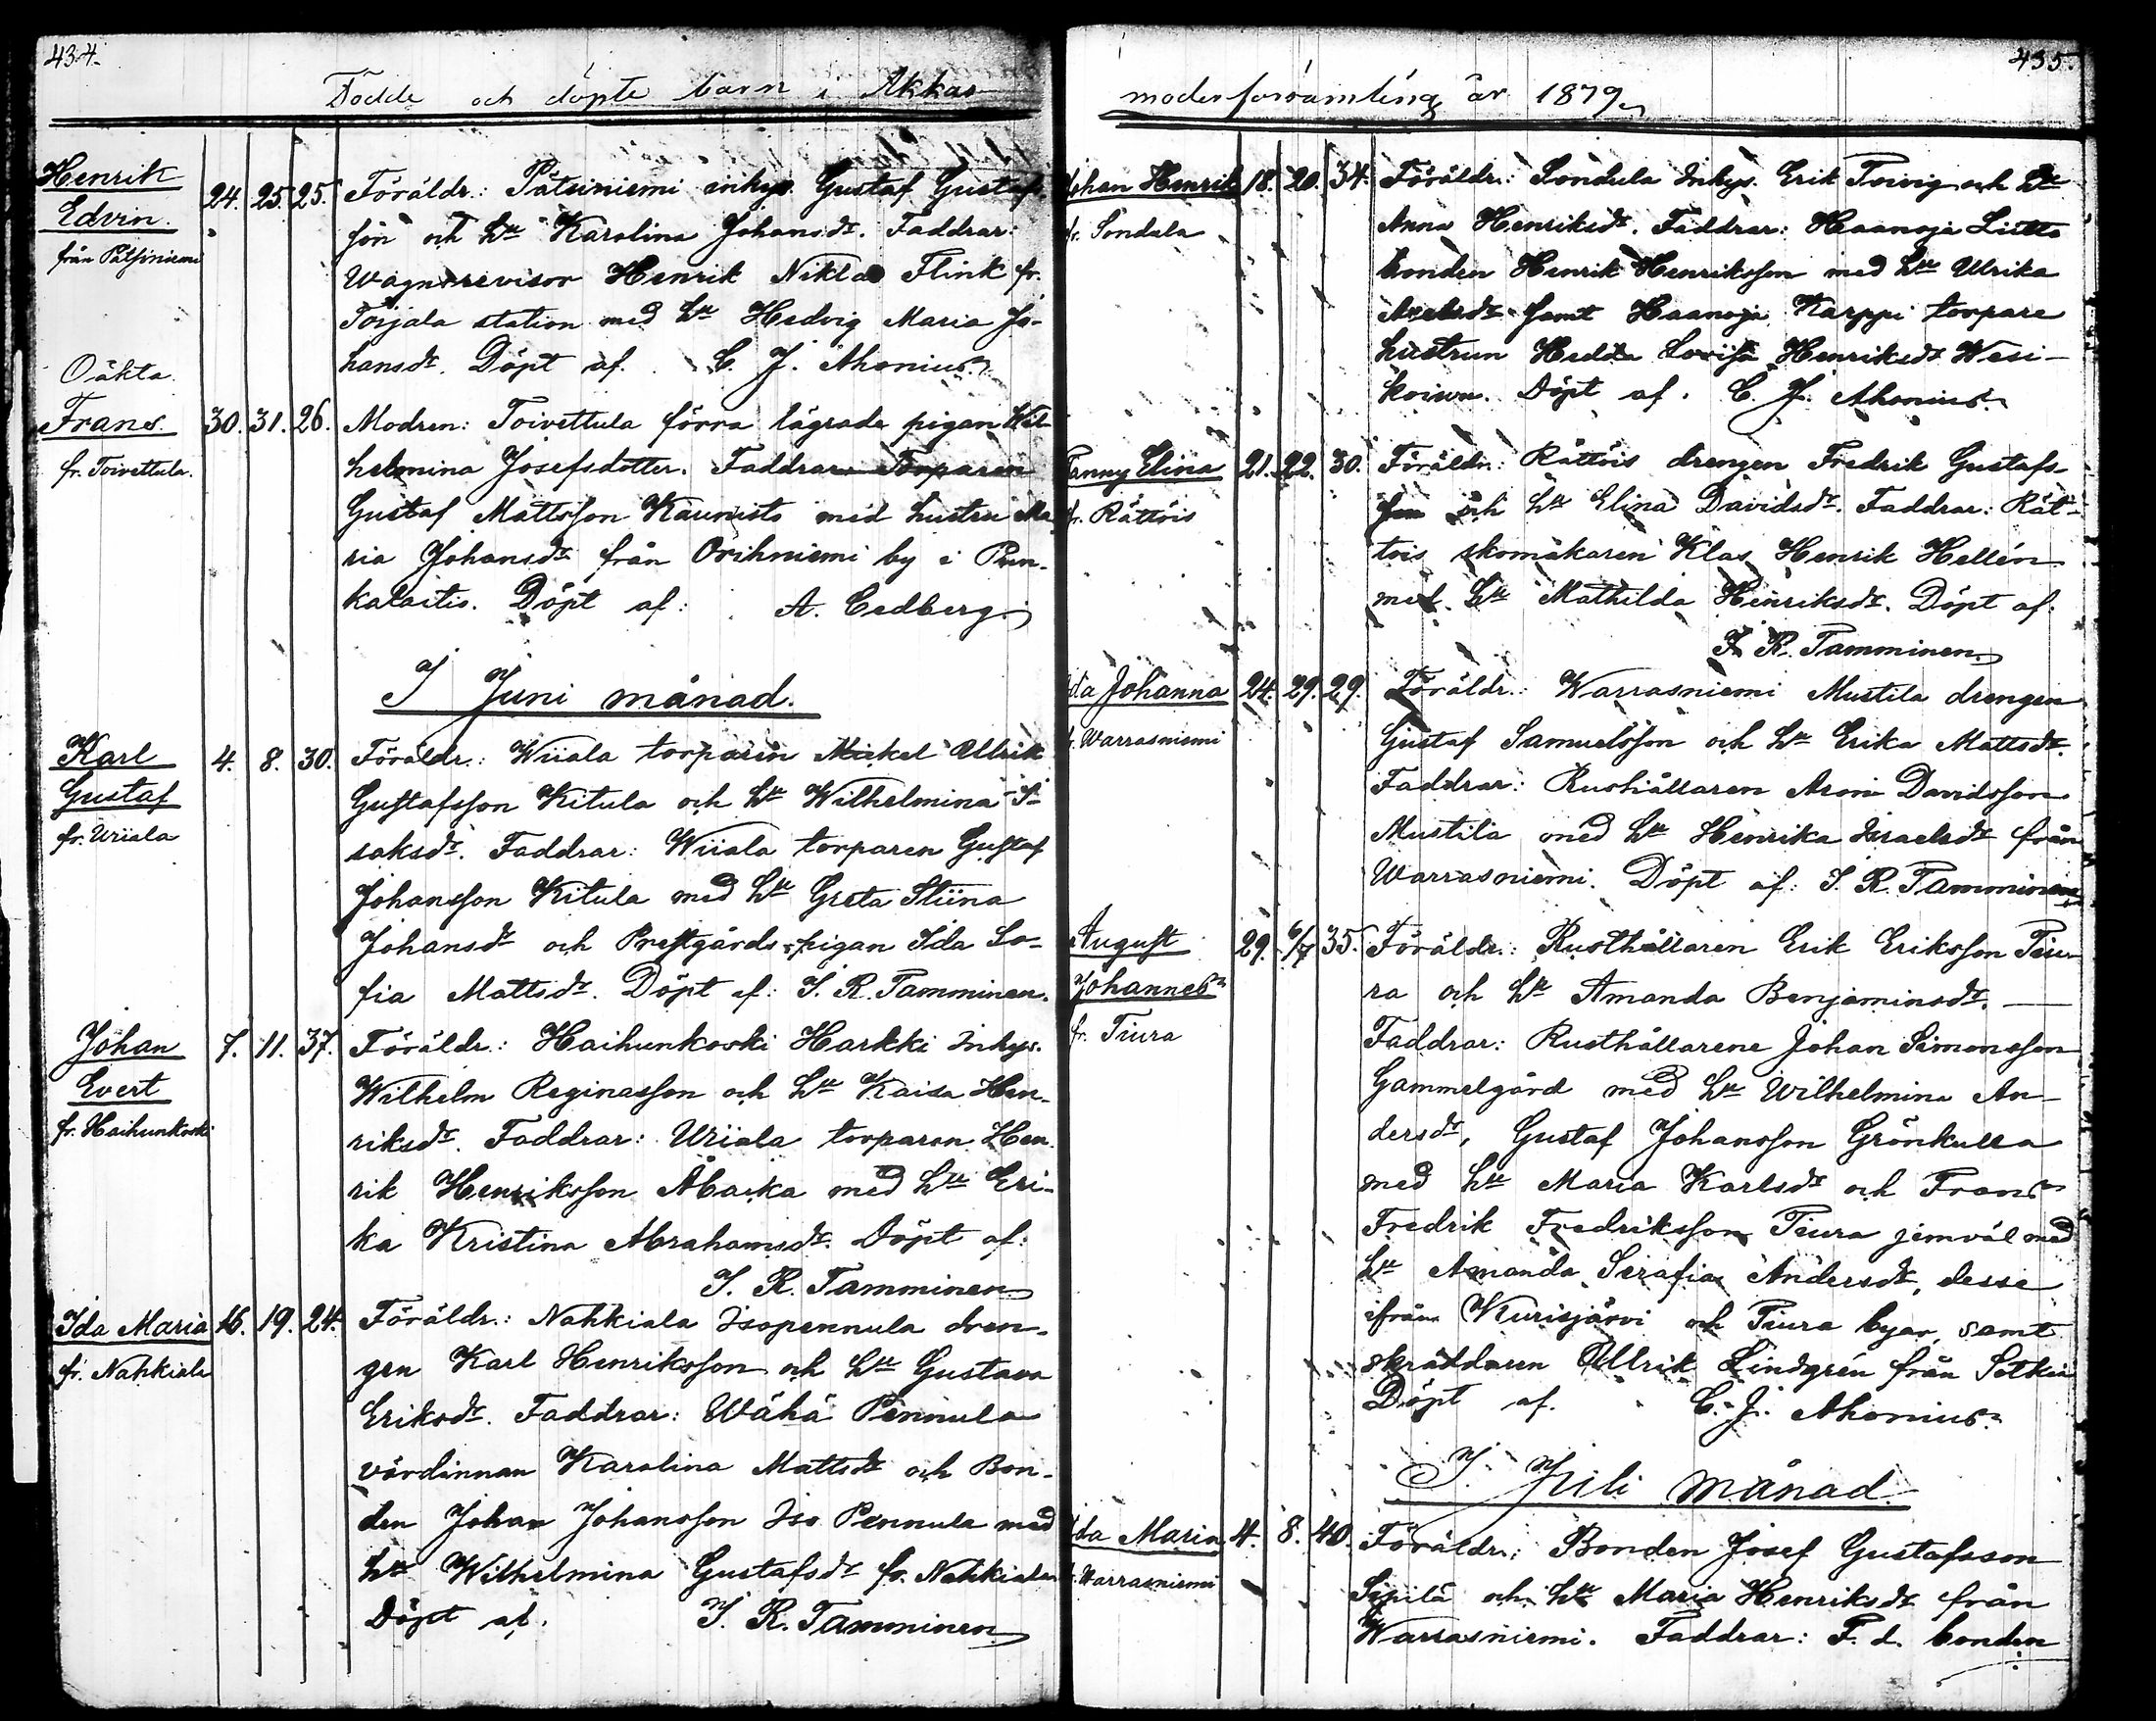 434.
Födde och döpte barn i Akkas
Henrik
Edvin.
från Pätsiniemi
24. 25. 25.
Föräldr.: Pätsiniemi inhys. Gustaf Gustafs-
son och hu Karolina Johansdr. Faddrar:
Wagnsrevisor Henrik Niklas Flink fr.
Toijala station med hu Hedvig Maria Jo-
hansdr. Döpt af. C. J. Ahonius
Oäkta
Frans
fr. Toivettula.
30. 31. 26.
Modren: Toivettula förra lägrade pigan Wil-
helmina Josefsdotter. Faddrar: Torparen
Gustaf Mattsson Kaunisto med hustru Ma-
ria Johansdr från Orihniemi by i Pun-
kalaitio. Döpt af: A. Cedberg.
I Juni månad.
Karl
Gustaf
fr. Uriala
4. 8. 30.
Föräldr.: Wiiala torparen Mickel Ullrik
Gustafsson Kitula och hu Wilhelmina I-
saksdr. Faddrar: Wiiala torparen Gustaf
Johansson Kitula med hu Greta Stiina
Johansdr och Prestgårds-pigan Ida So-
fia Mattsdr. Döpt af: I. R. Tamminen.
Johan
Evert
fr. Haihunkoski
7. 11. 37.
Föräldr.: Haihunkoski Harkki Inhys.
Wilhelm Reginasson och hu Kaisa Hen-
riksdr. Faddrar: Uriala torparen Hen-
rik Henriksson Abacka med hu Eri-
ka Kristina Abrahamsdr. Döpt af:
I. R. Tamminen
Ida Maria
fr. Nahkiala
16. 19. 24.
Föräldr.: Nahkiala Isopennula dren-
gen Karl Henriksson och hu Gustava
Eriksdr. Faddrar: Wähä Pennula
värdinnan Karolina Mattsdr och Bon-
den Johan Johansson Iso Pennula med
hu Wilhelmina Gustafsdr fr. Nahkiala
Döpt af. I. R. Tamminen
435.
moderförsamling år 1879
Johan Henrik
fr. Sondala
18. 20. 34.
Föräldr.: Sondula Inhys. Erik Toivig och hu
Anna Henriksdr. Faddrar: Haanoja
bonden Henrik Henriksson med hu Ulrika
Axelsdr samt Haanoja Karppi torpare
hustrun Hedda Lovisa Henriksdr Wesi-
koivu. Döpt af. C. J. Ahonius
Fanny Elina
fr. Rättöis
21. 22. 30.
Föräldr.: Rättöis drengen Fredrik Gustafs-
son och hu Elina Davidsdr. Faddrar: Rät-
tois skomakaren Klas Henrik Hellén
med hu Mathilda Henriksdr. Döpt af.
I. R. Tamminen
Ida Johanna
fr. Warrasniemi
24. 29. 29.
Föräldr.: Warrasniemi Mustila drengen
Gustaf Samuelsson och hu Erika Mattsdr.
Faddrar: Rushållaren Aron Davidsson
Mustila med hu Henrika Israelsdr från
Warrasniemi. Döpt af: I. R. Tamminen
August
Johannes
fr. Tiura
29. 6/7 35.
Föräldr.: Rusthållaren Erik Eriksson Tiu-
ra och hu Amanda Benjaminsdr.
Faddrar: Rusthållarene Johan Simonsson
Gammelgård med hu Wilhelmina An-
dersdr, Gustaf Johansson Grönkulla
med hu Maria Karlsdr och Frans
Fredrik Fredriksson Tiura jemväl med
hu Amanda Serafia Andersdr, desse
ifrån Kurisjärvi och Tiura byar, samt
skräddaren Ullrik Lindgrén från Sotkia
Döpt af. C. J. Ahonius.
I. Juli månad.
Ida Maria
fr. Warrasniemi
4. 8. 40.
Föräldr.: Bonden Josef Gustafsson
Sipilä och hu Maria Henriksdr från
Warrasniemi. Faddrar: F. d. bonden